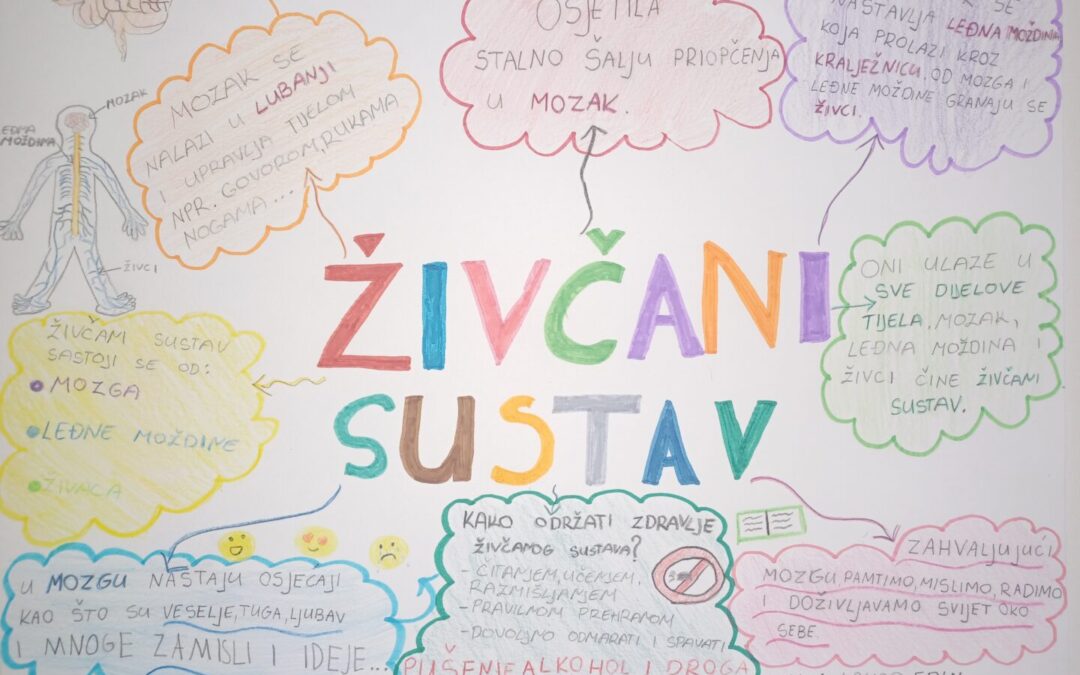 MOZAK SE
NALAZI U LUBANJI
I UPRAVLJA TIJELOM
NPR. GOVOROM, RUKAMA
NOGAMA...
OSJETILA
STALNO ŠALJU PRIOPČENJA
U MOZAK.
SE
NASTAVLJA LEĐNA MOŽDINA
KOJA PROLAZI KROZ
KRALJEŽNICU, OD MOZGA I
LEĐNE MOŽDINE GRANAJU SE
ŽIVCI.
MOZAK
LEĐNA
MOŽDINA
ŽIVCI
ŽIVČANI
SUSTAV
ONI ULAZE U
SVE DIJELOVE
TIJELA, MOZAK,
LEĐNA MOŽDINA I
ŽIVCI ČINE ŽIVČANI
SUSTAV.
ŽIVČANI SUSTAV
SASTOJI SE OD:
MOZGA
LEĐNE MOŽDINE
ŽIVACA
U MOZGU NASTAJU OSJEĆAJI
KAO ŠTO SU VESELJE, TUGA, LJUBAV
I MNOGE ZAMISLI I IDEJE...
KAKO ODRŽATI ZDRAVLJE
ŽIVČANOG SUSTAVA?
- ČITANJEM, UČENJEM,
RAZMIŠLJANJEM
- PRAVILNOM PREHRANOM
- DOVOLJNO ODMARATI I SPAVATI
PUŠENJE ALKOHOL I DROGA
ZAHVALJUJUĆI
MOZGU PAMTIMO, MISLIMO, RADIMO
I DOŽIVLJAVAMO SVIJET OKO
SEBE.